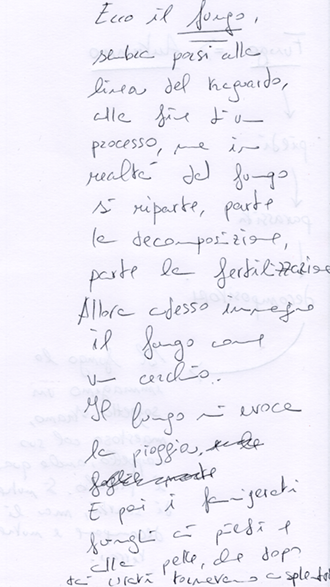 Ecco il fungo,
sembra porsi alla
linea del traguardo,
alla fine d'un
processo, ma in
realtà dal fungo
si riparte, parte
la decomposizione,
parte la fertilizzazione
Allora adesso immagino
il fungo come
un cerchio.
Il fungo mi evoca
la pioggia,
foglie morte
E poi i famigerati
funghi ai piedi e
alla pelle, che dopo
tornavano a splende